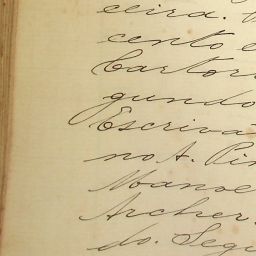 ceira.
cento e
Cartori
gundo
Escrivã
no A. Pin
Manoe
Archer.
do. Segu